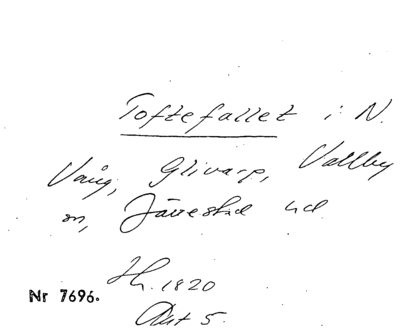 Toftefallet i N.
Vång, Glivarp, Vallby
m, Järrestad hd
Hh. 1820
Akt 5.
Nr 7696.